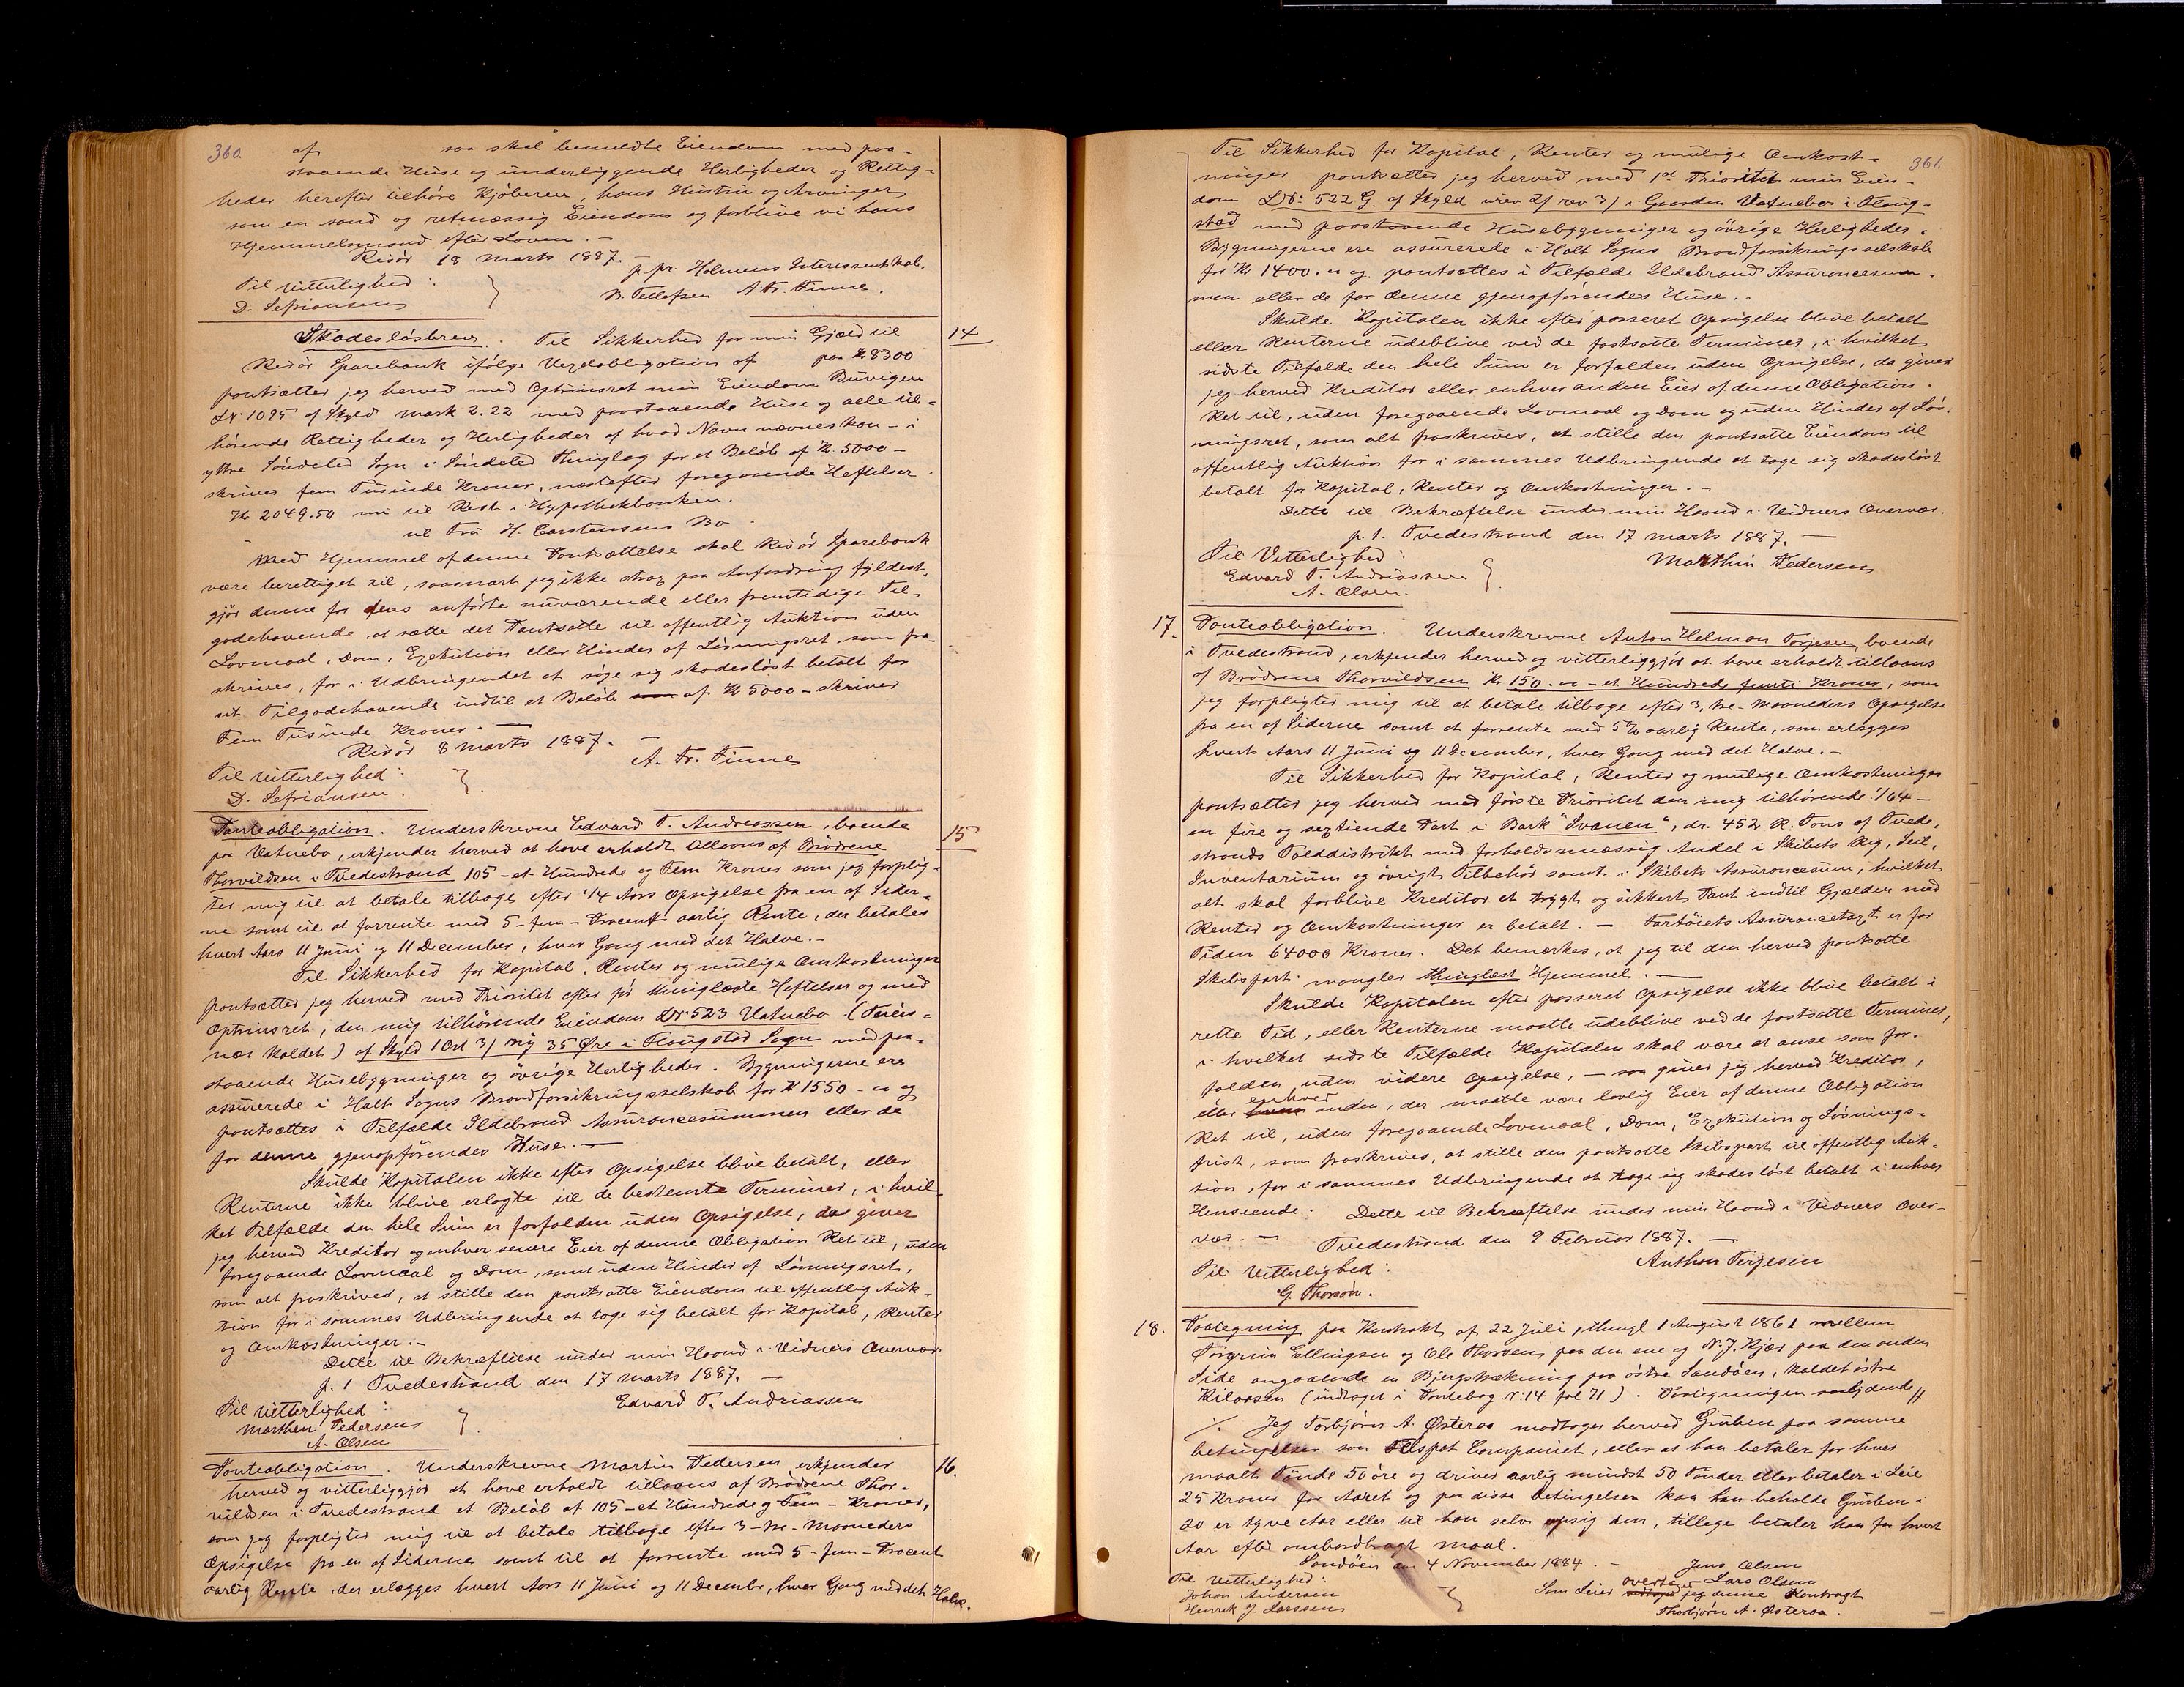 360.
af saa skal bemeldte Eiendom med paa-
staaende Huse og underliggende Herligheder og Rettig-
heder herefter tilhøre Kjøberen, hans Hustru og Arvinger
som en sand og retmæssig Eiendom og forblive vi hans
Hjemmelsmænd efter Loven. -
Risør 18 Marts 1887. -
p. pr. Holmens Interessentskab.
Til Vitterlighed:
B. Tellefsen A Fr. Finne.
D. Sefriansen
14
Skadesløsbrev. Til Sikkerhed for min Gjæld til
Risør Sparebank ifølge Vexelobligation af paa Kr 8300
pantsætter jeg herved med Optrinsret min Eiendom Buvigen
LN 1095 af Skyld Mark 2.22 med paastaaende Huse og alle til-
hørende Rettigheder og Herligheder af hvad Navn nævnes kan - i
ytre Søndeled Sogn i Søndeled Thinglag for et Beløb af Kr. 5000 -
skriver fem Tusinde Kroner, næstefter foregaaende Heftelser
Kr 2049.54 nu til Rest i Hypothekbanken.
" til Fru H. Carstensens Bo
Med Hjemmel af denne Pantsættelse skal Risør Sparebank
være berettiget til, saasnart jeg ikke strax paa Anfordring fyldest-
gjør denne for dens anførte nuværende eller fremtidige Til-
godehavende, at sætte det Pantsatte til offentlig Auktion uden
Lovmaal, Dom, Exekution eller Hinder af Løsningsret, som fra-
skrives, for i Udbringendet at søge sig skadesløst betalt for
sit Tilgodehavende indtil et Beløb af Kr 5000 - skriver
Fem Tusinde Kroner. -
Risør 8 Marts 1887. -
A. Fr. Finne
Til Vitterlighed:
D. Sefriansen.
15
Panteobligation. Underskrevne Edvard T. Andreassen, boende
paa Vatnebo, erkjender herved at have erholdt tillaans af Brødrene
Thorvildsen i Tvedestrand 105 - et Hundrede og Fem Kroner som jeg forplig-
ter mig til at betale tilbage efter 1/4 Aars Opsigelse fra en af Sider-
ne samt til at forrente med 5 - fem - Procent aarlig Rente, der betales
hvert Aars 11 Juni og 11 December, hver Gang med det Halve. -
Til Sikkerhed for Kapital, Renter og mulige Omkostninger
pantsætter jeg herved med Prioritet efter før thinglæste Heftelser og med
Optrinsret, den mig tilhørende Eiendom LN 523 Vatnebo (
næs kaldet) af Skyld 1 Ort 3/ ny 35 Øre i Flougstad Sogn med paa-
staaende Husebygninger og øvrige Herligheder. Bygningerne ere
assurerede i Holt Sogns Brandforsikringsselskab for Kr 1550 - oo og
pantsættes i Tilfælde Ildebrand Assurancesummen eller de
for denne gjenopførendes Huse. -
Skulde Kapitalen ikke efter Opsigelse blive betalt, eller
Renterne ikke blive erlagte til de bestemte Terminer, i hvil-
ket Tilfælde den hele Sum er forfalden uden Opsigelse, da giver
jeg herved Kreditor og enhver senere Eier af denne Obligation Ret til, uden
foregaaende Lovmaal og Dom, samt uden Hinder af Løsningsret,
som alt fraskrives, at stille den pantsatte Eiendom til offentlig Auk-
tion for i sammes Udbringende at tage sig betalt for Kapital, Renter
og Omkostninger. -
Dette til Bekræftelse under min Haand i Vidners Overvær.
p. t Tvedestrand den 17 Marts 1887. -
Edvard T. Andriassen
Til Vitterlighed:
Marthen Pedersen
A. Olsen
16.
Panteobligation. Underskrevne Martin Pedersen erkjender
herved og vitterliggjør at have erholdt tillaans af Brødrene Thor-
vildsen i Tvedestrand et Beløb af 105 - et Hundrede og Fem - Kroner,
som jeg forpligter mig til at betale tilbage efter 3 - tre - Maaneders
Opsigelse fra en af Siderne samt til at forrente med 5 - fem - Procent
aarlig Rente, der erlægges hvert Aars 11 Juni og 11 Decembr, hver Gang med det Halve.
361.
Til Sikkerhed for Kapital, Renter og mulige Omkost-
ninger pantsætter jeg herved med 1ste Prioritet min Eien-
dom LN: 522 G. af Skyld urev 2/ rev 3/ i Gaarden Vatnebo i Floug-
stad med paastaaende Husebygninger og øvrige Herligheder.
Bygningerne ere assurerede i Holt Sogns Brandforsikringsselskab
for Kr 1400. oo og pantsættes i Tilfælde Ildebrand Assurancesum-
men eller de for denne gjenopførendes Huse. -
Skulde Kapitalen ikke efter passeret Opsigelse blive betalt
eller Renterne udeblive ved de fastsatte Terminer, i hvilket
sidste Tilfælde den hele Sum er forfalden uden Opsigelse, da giver
jeg herved Kreditor eller enhver anden Eier af denne Obligation
Ret til, uden foregaaende Lovmaal og Dom og uden Hinder af Løs-
ningsret, som alt fraskrives, at stille den pantsatte Eiendom til
offentlig Auktion for i sammes Udbringende at tage sig skadesløst
betalt for Kapital, Renter og Omkostninger. -
Dette til Bekræftelse under min Haand i Vidners Overvær.
p. t. Tvedestrand den 17 Marts 1887. -
Til Vitterlighed:
Marthin Pedersen
Edvard T. Andriassen
A. Olsen.
17.
Panteobligation. Underskrevne Anton Helman Terjesen, boende
i Tvedestrand, erkjender herved og vitterliggjør at have erholdt tillaans
af Brødrene Thorvildsen Kr 150. oo - et Hundrede femti Kroner, som
jeg forpligter mig til at betale tilbage efter 3, tre - Maaneders Opsigelse
fra en af Siderne samt at forrente med 5 % aarlig Rente, som erlægges
hvert Aars 11 Juni og 11 December, hver Gang med det Halve. -
Til Sikkerhed for Kapital, Renter og mulige Omkostninger
pantsætter jeg herved med første Prioritet den mig tilhørende 1/64 -
en fire og sextiende Part i Bark "Svanen", dr. 452 R. Tons af Tvede-
strands Tolddistrikt med forholdsmæssig Andel i Skibets Rig, Seil,
Inventarium og øvrigt Tilbehør samt i Skibets Assurancesum, hvilket
alt skal forblive Kreditor et trygt og sikkert Pant indtil Gjælden med
Renter og Omkostninger er betalt. - Fartøiets Assurancetaxt er for
Tiden 64000 Kroner. Det bemærkes, at jeg til den herved pantsatte
Skibspart mangler thinglæst Hjemmel. -
Skulde Kapitalen efter passeret Opsigelse ikke blive betalt i
rette Tid, eller Renterne maatte udeblive ved de fastsatte Terminer,
i hvilket sidste Tilfælde Kapitalen skal være at anse som for-
falden uden videre Opsigelse, - saa giver jeg herved Kreditor,
enhver
eller anden, der maatte være lovlig Eier af denne Obligation
Ret til, uden foregaaende Lovmaal, Dom, Exekution og Løsnings-
frist, som fraskrives, at stille den pantsatte Skibspart til offentlig Auk-
tion, for i sammes Udbringende at tage sig skadesløst betalt i enhver
Henseende. Dette til Bekræftelse under min Haand i Vidners Over-
vær. - Tvedestrand den 9 Februar 1887. -
Anthon Terjesen
Til Vitterlighed:
G. Thorsøn.
18.
Paategning paa Kontrakt af 22 Juli, thingl 1 August 1861 mellem
Torgrim Ellingsen og Ole Thorsen paa den ene og N. J. Kjær paa den anden
Side angaaende en Bjergstrækning paa østre Sandøen, kaldet østre
Kilaasen (indtaget i Pantebog N: 14 fol 71). Paategningen saalydende
./. Jeg Torbjørn A. Østeraa modtager herved Gruben paa samme
betingelser som Felspat Companiet, eller at han betaler for hver
maalt Tønde 50 øre og driver aarlig mindst 50 Tønder eller betaler i Leie
25 Kroner for Aaret og paa disse betingelser kan han beholde Gruben i
20 er tyve Aar eller til han selv opsig den, tillige betaler han for hvert
Aar efter ombordbragt maal.
Sandøen den 4 November 1884. -
Jens Olsen
Til Vitterlighed:
Lars Olsen
Johan Andersen
overtager
Som Leier jeg denne Kontragt
Henrik J. Larssen
Thorbjørn A. Østeraa.